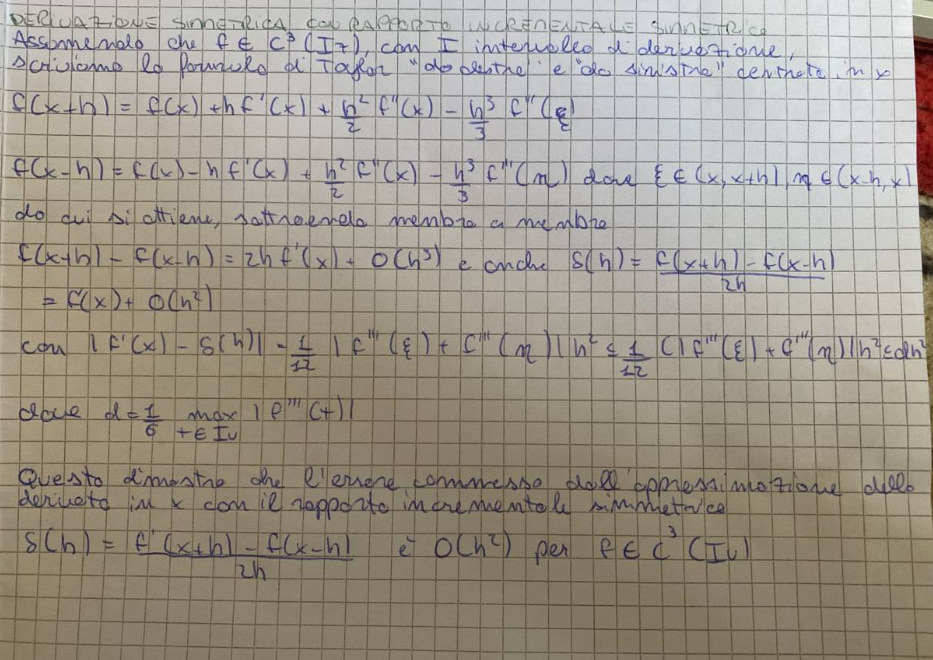 DERIVAZIONE SIMMETRICA CON RAPPORTO INCREMENTALE SIMMETRICO
Assumendo che f ∈ C³(Iz), con I intervallo di derivazione,
scriviamo la formula di Taylor "da destra" e "da sinistra" centrata in x
f(x+h) = f(x) + h f'(x) + h²/2 f''(x) - h³/3 f'''(ξ)
f(x-h) = f(x) - h f'(x) + h²/2 f''(x) - h³/3 f'''(η) dove ξ ∈ (x, x+h), η ∈ (x-h, x)
da cui si ottiene, sottraendo membro a membro
f(x+h) - f(x-h) = 2h f'(x) + O(h³) e anche δ(h) = f(x+h) - f(x-h) / 2h
= f(x) + O(h²)
con |f'(x) - δ(h)| = 1/12 |f'''(ξ) + f'''(η)| h² ≤ 1/12 (|f'''(ξ| + f'''(η)| h² ≤ dh²
dove d = 1/6 max t ∈ Iu |f'''(t)|
Questo dimostra che l'errore commesso dall'approssimazione della
derivata in x con il rapporto incrementale simmetrico
δ(h) = f'(x+h) - f(x-h) / 2h è O(h²) per f ∈ C³(Iu)